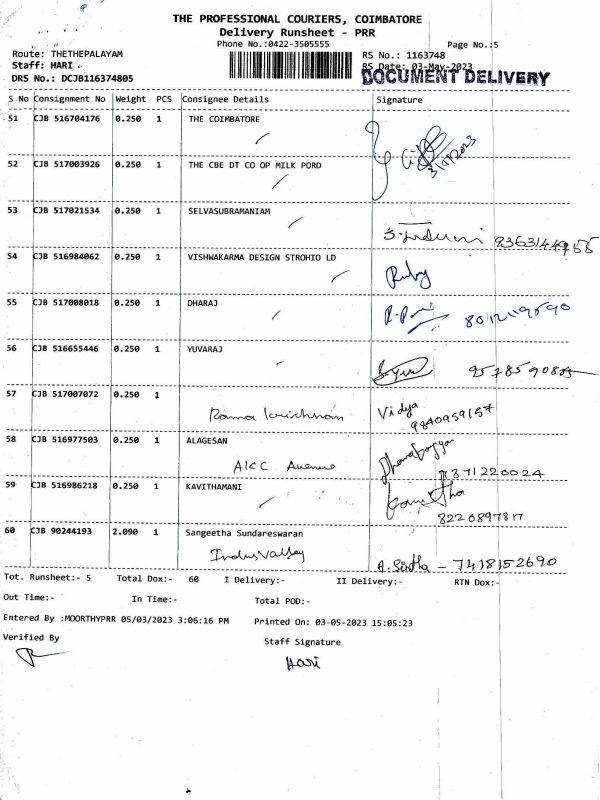 THE PROFESSIONAL COURIERS, COIMBATORE
Delivery Runsheet - PRR
Phone No.:0422-3505555
Page No.:5
Route: THETHEPALAYAM
RS No.: 1163748
Staff: HARI
RS Date: 03-May-2023
DRS No.: DCJB116374805
DOCUMENT DELIVERY
S No Consignment No Weight PCS Consignee Details Signature
51 CJB 516704176 0.250 1 THE COIMBATORE
52 CJB 517003926 0.250 1 THE CBE DT CO OP MILK PORD
53 CJB 517021534 0.250 1 SELVASUBRAMANIAM
54 CJB 516984062 0.250 1 VISHWAKARMA DESIGN STROHIO LD
Ruby
55 CJB 517008018 0.250 1 DHARAJ
56 CJB 516655446 0.250 1 YUVARAJ
57 CJB 517007072 0.250 1
Rama krishnan Vidya
9840959157
58 CJB 516977503 0.250 1 ALAGESAN
AKC Avenue
59 CJB 516986218 0.250 1 KAVITHAMANI
60 CJB 90244193 2.090 1 Sangeetha Sundareswaran
Indus Valley
7418152690
Tot. Runsheet:- 5 Total Dox:- 60 I Delivery:- II Delivery:- RTN Dox:-
Out Time:- In Time:- Total POD:-
Entered By :MOORTHYPRR 05/03/2023 3:06:16 PM Printed On: 03-05-2023 15:05:23
Verified By Staff Signature
Hari